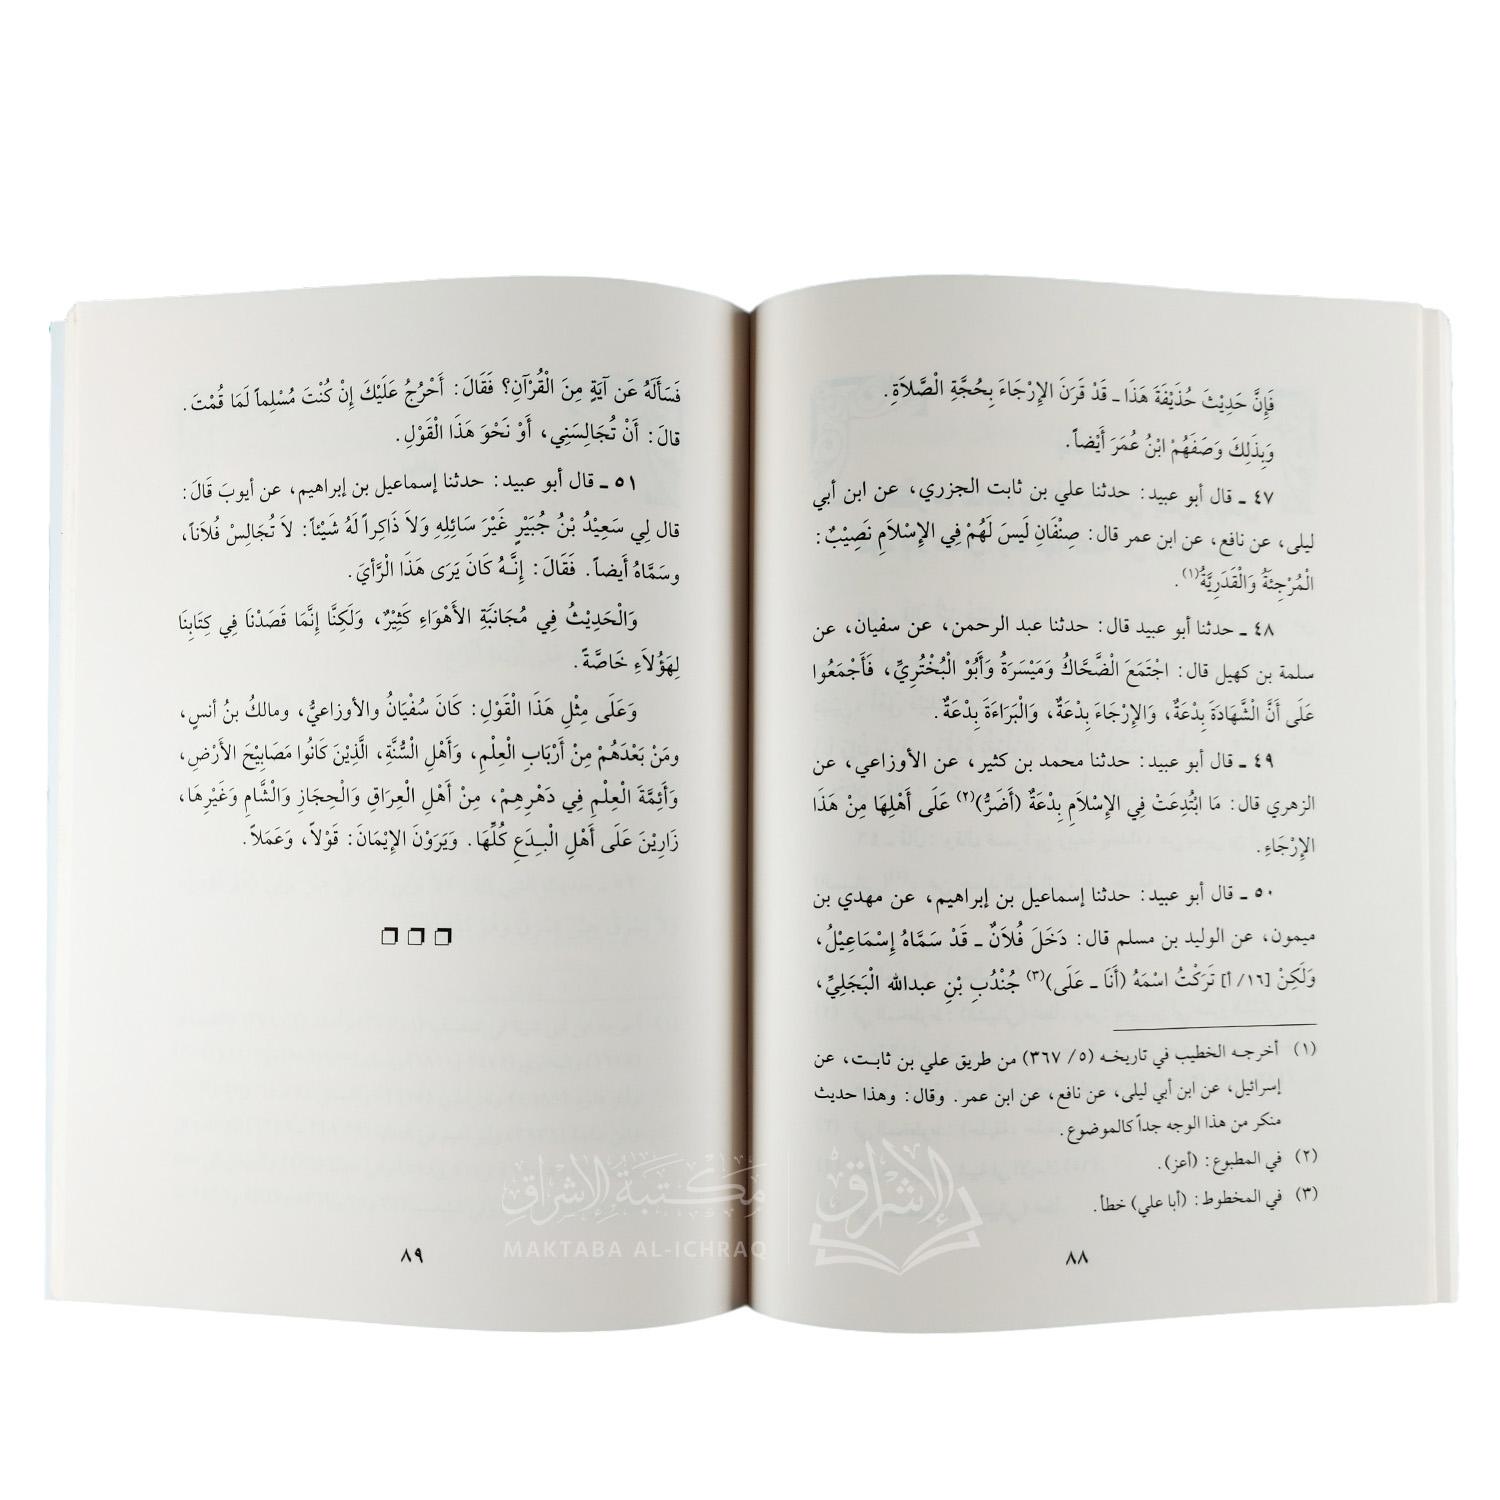 فَإِنَّ حَدِيْثَ حُذَيْفَةَ هَذَا ـ قَدْ قَرَنَ الإِرْجَاءَ بِحُجَّةِ الْصَّلاَةِ.
وَبِذَلِكَ وَصَفَهُمْ ابْنُ عُمَرَ أَيْضاً.
٤٧ ـ قال أبو عبيد: حدثنا علي بن ثابت الجزري، عن ابن أبي
ليلى، عن نافع، عن ابن عمر قال: صِنْفَانِ لَيسَ لَهُمْ فِي الإِسْلاَمِ نَصِيْبٌ:
الْمُرْجِئَةُ وَالْقَدَرِيَّةُ(١).
٤٨ ـ حدثنا أبو عبيد قال: حدثنا عبد الرحمن، عن سفيان، عن
سلمة بن كهيل قال: اجْتَمَعَ الْضَّحَّاكُ وَمَيْسَرَةُ وَأَبُوْ الْبُخْتُرِيِّ، فَأَجْمَعُوا
عَلَى أَنَّ الْشَّهَادَةَ بِدْعَةٌ، وَالإِرْجَاءَ بِدْعَةٌ، وَالْبَرَاءَةَ بِدْعَةٌ.
٤٩ ـ قال أبو عبيد: حدثنا محمد بن كثير، عن الأوزاعي، عن
الزهري قال: مَا ابْتُدِعَتْ فِي الإِسْلاَمِ بِدْعَةٌ (أَضَرُّ)(٢) عَلَى أَهْلِهَا مِنْ هَذَا
الإِرْجَاءِ.
٥٠ ـ قال أبو عبيد: حدثنا إسماعيل بن إبراهيم، عن مهدي بن
ميمون، عن الوليد بن مسلم قال: دَخَلَ فُلاَنٌ ـ قَدْ سَمَّاهُ إِسْمَاعِيْلُ،
وَلَكِنْ [١٦/ أ] تَرَكْتُ اسْمَهُ (أَنَا ـ عَلَى)(٣) جُنْدُبِ بْنِ عبدالله الْبَجَلِيِّ،
(١) أخرجه الخطيب في تاريخه (٥/ ٣٦٧) من طريق علي بن ثابت، عن
إسرائيل، عن ابن أبي ليلى، عن نافع، عن ابن عمر. وقال: وهذا حديث
منكر من هذا الوجه جداً كالموضوع.
(٢) في المطبوع: (أعز).
(٣) في المخطوط: (أبا علي) خطأ.
٨٨
فَسَأَلَهُ عَن آيَةٍ مِنَ الْقُرْآنِ؟ فَقَالَ: أَحْرُجُ عَلَيْكَ إِنْ كُنْتَ مُسْلِماً لَمَا قُمْتَ.
قالَ: أَنْ تُجَالِسَنِي، أَوْ نَحْوَ هَذَا الْقَوْلِ.
٥١ ـ قال أبو عبيد: حدثنا إسماعيل بن إبراهيم، عن أيوبَ قَالَ:
قال لِي سَعِيْدُ بْنُ جُبَيْرٍ غَيْرَ سَائِلِهِ وَلاَ ذَاكِراً لَهُ شَيْئاً: لاَ تُجَالِسْ فُلاَناً،
وسَمَّاهُ أَيضاً. فَقَالَ: إِنَّهُ كَانَ يَرَى هَذَا الْرَّأيَ.
وَالْحَدِيْثُ فِي مُجَانَبَةِ الأَهْوَاءِ كَثِيْرٌ، وَلَكِنَّا إِنَّمَا قَصَدْنَا فِي كِتَابِنَا
لِهَؤُلاَءِ خَاصَّةً.
وَعَلَى مِثْلِ هَذَا الْقَوْلِ: كَانَ سُفْيَانُ والأوزاعيُّ، ومالكُ بنُ أنسٍ،
ومَنْ بَعْدَهُمْ مِنْ أَرْبَابِ الْعِلْمِ، وَأَهْلِ الْسُّنَّةِ، الَّذِيْنَ كَانُوا مَصَابِيْحَ الأَرْضِ،
وَأَئِمَّةَ الْعِلْمِ فِي دَهْرِهِمْ، مِنْ أَهْلِ الْعِرَاقِ وَالْحِجَازِ وَالْشَّامِ وَغَيْرِهَا،
زَارِيْنَ عَلَى أَهْلِ الْبِدَعِ كُلِّهَا. وَيَرَوْنَ الإِيْمَانَ: قَوْلاً، وَعَمَلاً.
٨٩
مَكْتَبَةُ الإِشْرَاق
MAKTABA AL-ICHRAQ
الإشراق